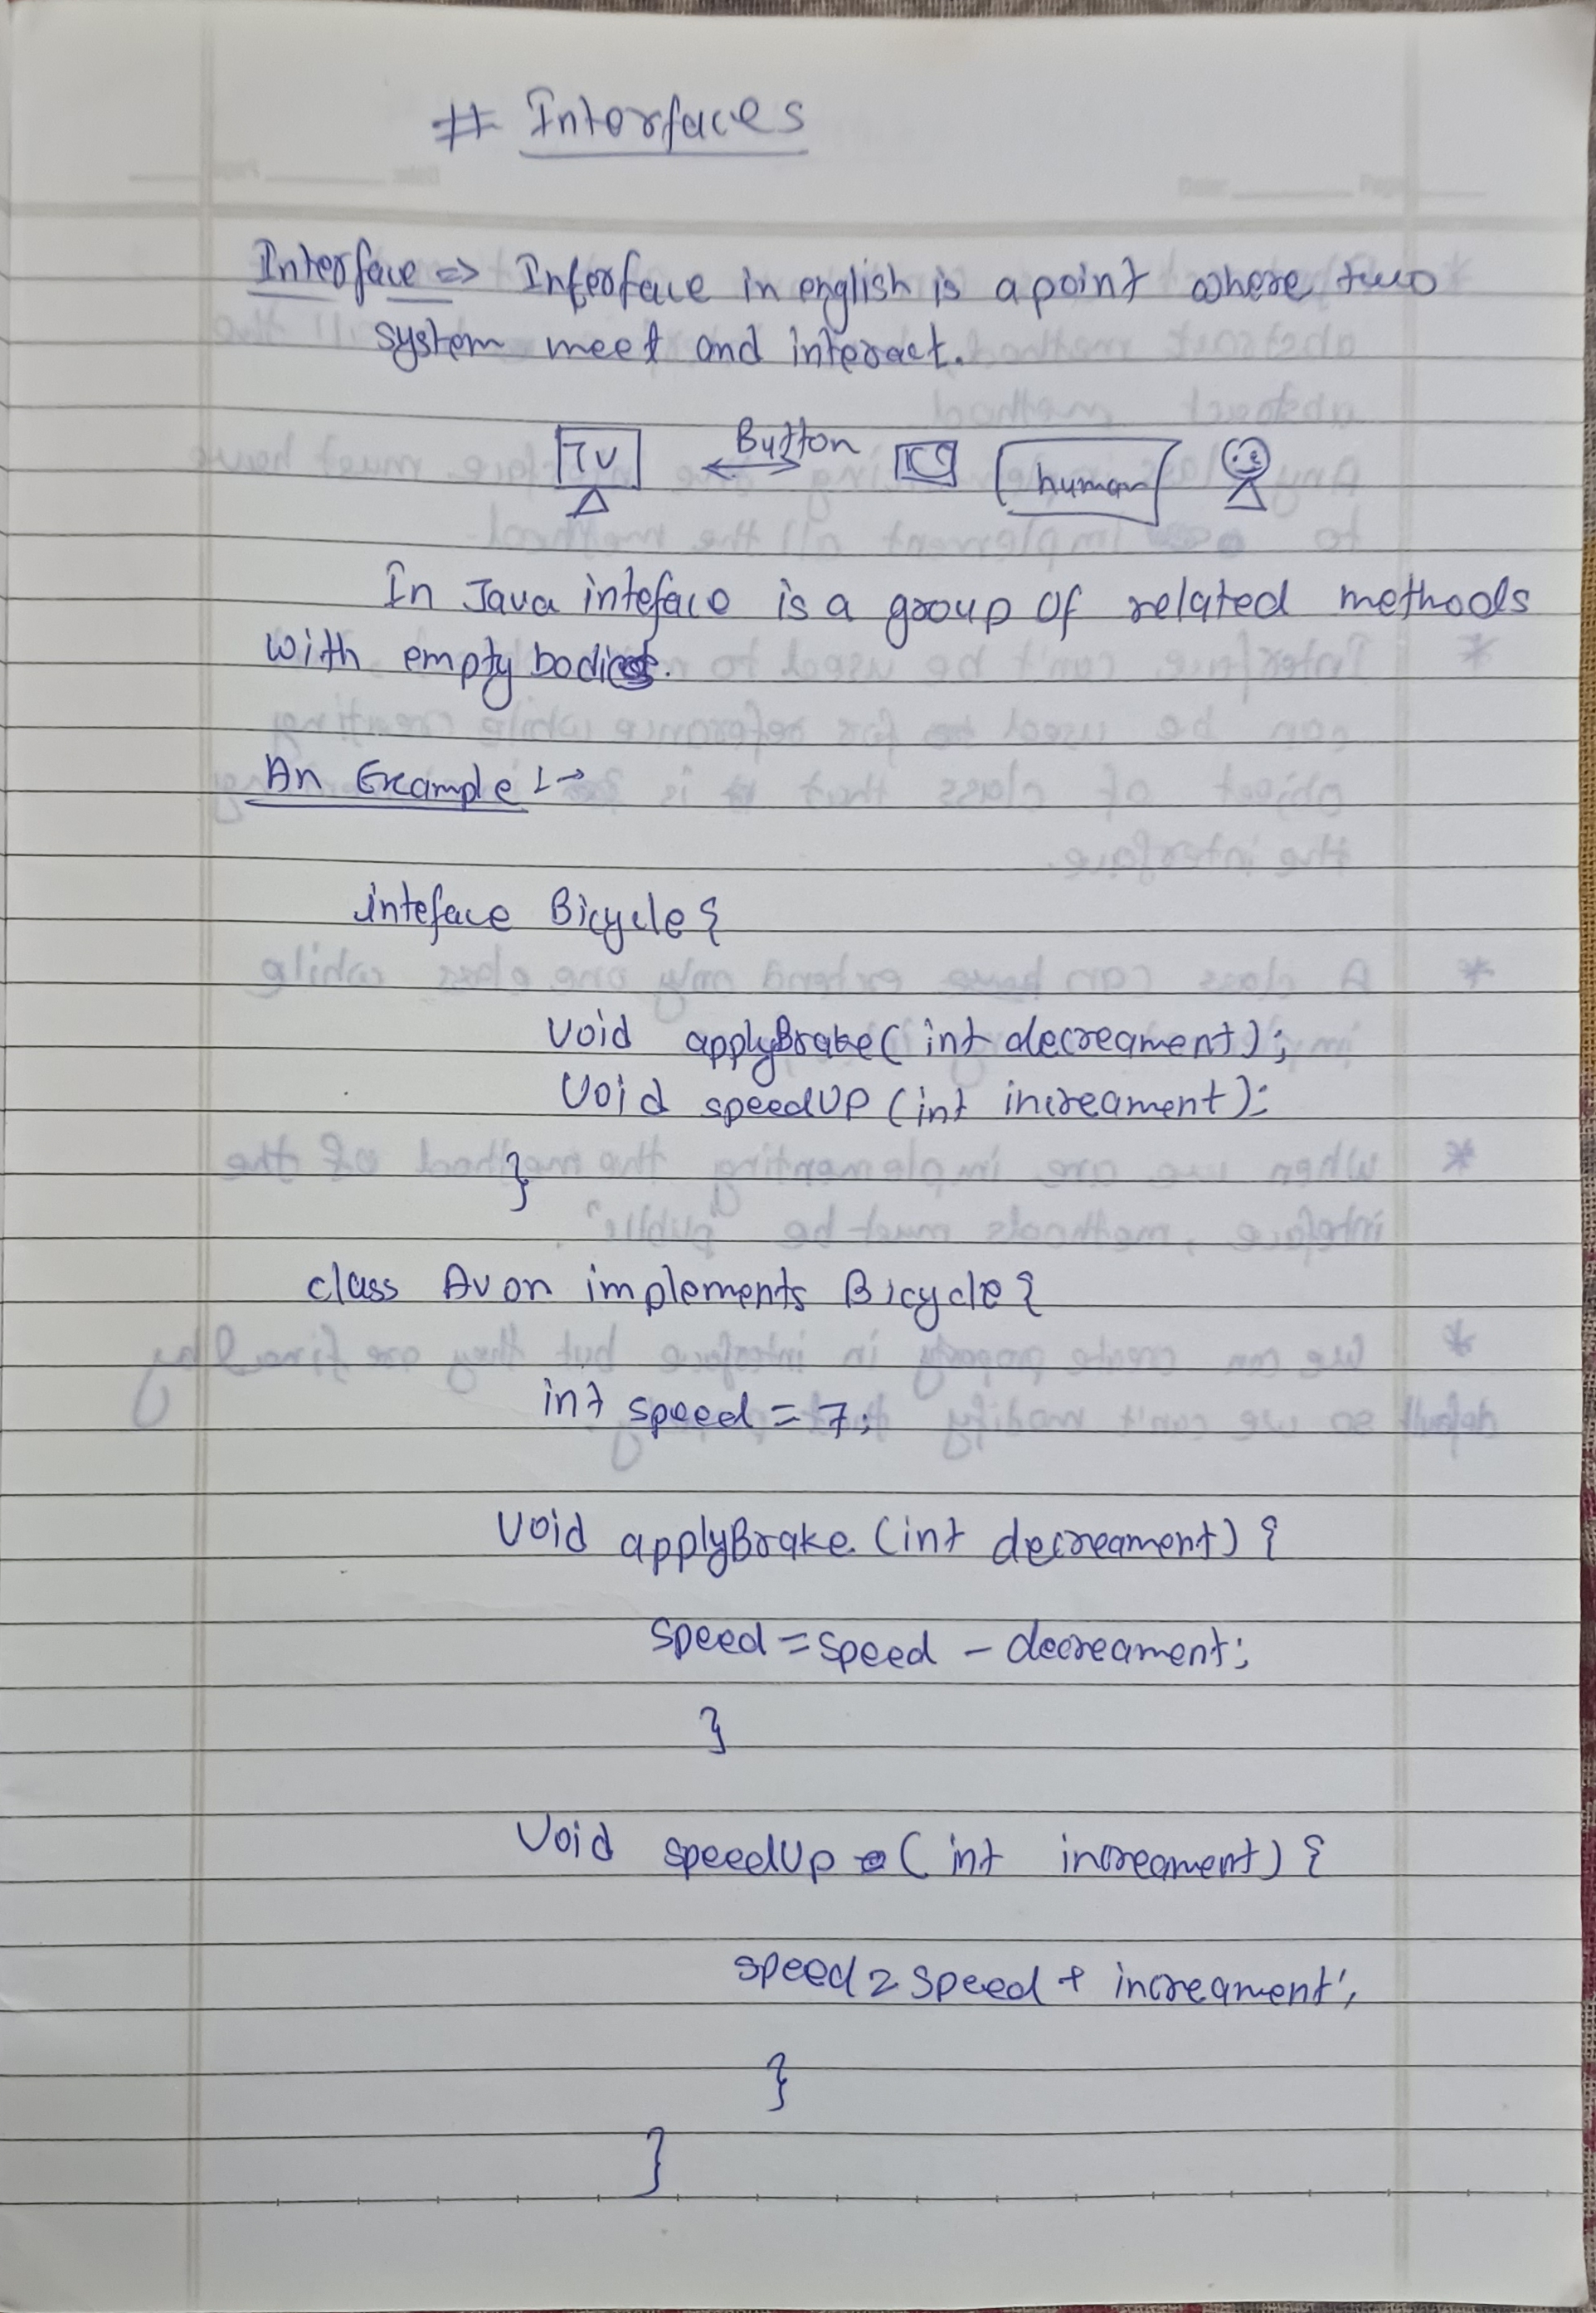 # Interfaces
Interface => Interface in english is a point where two
system meet and interact.
TV Button human
In Java inteface is a group of related methods
with empty bodies.
An Example :->
inteface Bicycle {
void applyBrake( int decreament );
void speedUP (int increament ):
}
class Avon implements Bicycle {
int speed = 7;
void applyBrake (int decreament) {
speed = speed - decreament;
}
Void speedUp ( int increament) {
speed = speed + increament;
}
}